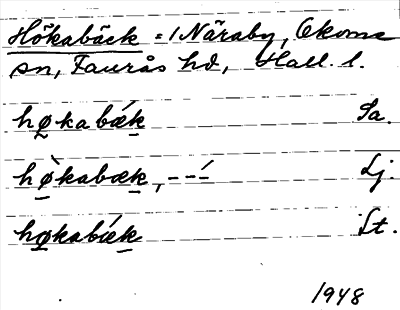 Hökabäck =/Näraby, Okome
sn, Faurås hd, Hall. l.
høkabǽk Sa.
hø̀kabæk, --– Lj.
høkabæ̀k St.
1948